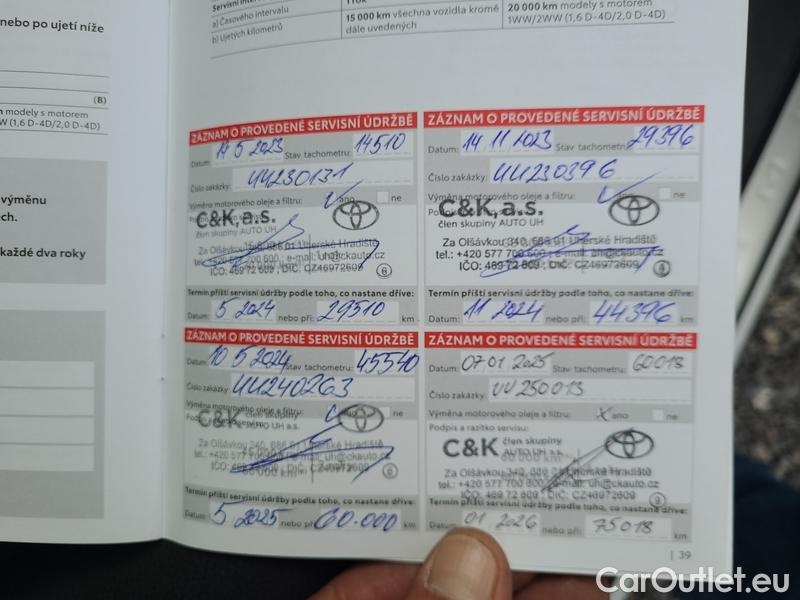 nebo po ujetí níže
(B)
modely s motorem
W (1,6 D-4D/2,0 D-4D)
výměnu
ech.
každé dva roky
Servisní
a) Časového intervalu
b) Ujetých kilometrů
1 rok
15 000 km všechna vozidla kromě
dále uvedených
20 000 km modely s motorem
1WW/2WW (1,6 D-4D/2,0 D-4D)
ZÁZNAM O PROVEDENÉ SERVISNÍ ÚDRŽBĚ
Datum: 19 5 2023 Stav tachometru: 14510
Číslo zakázky: UU230131
Výměna motorového oleje a filtru: ano ne
C&K, a.s.
člen skupiny AUTO UH
Za Olšávkou 686 01 Uherské Hradiště
IČO: 469 72 609, DIČ: CZ46972609
Termín příští servisní údržby podle toho, co nastane dříve:
Datum: 5 2024 nebo při: 29510 km
ZÁZNAM O PROVEDENÉ SERVISNÍ ÚDRŽBĚ
Datum: 14 11 2023 Stav tachometru: 29396
Číslo zakázky: UU230396
Výměna motorového oleje a filtru: ano ne
C&K, a.s.
člen skupiny AUTO UH
Za Olšávkou 340, 686 01 Uherské Hradiště
tel.: +420 577 700 600, e-mail: uh@ckauto.cz
IČO: 469 72 609, DIČ: CZ46972609
Termín příští servisní údržby podle toho, co nastane dříve:
Datum: 11 2024 nebo při: 44396 km
ZÁZNAM O PROVEDENÉ SERVISNÍ ÚDRŽBĚ
Datum: 10 5 2024 Stav tachometru: 45540
Číslo zakázky: UU240263
Výměna motorového oleje a filtru: ano ne
C&K člen skupiny
AUTO UH a.s.
Za Olšávkou 340, 686 01 Uherské Hradiště
IČO: 469 72 609, DIČ: CZ46972609
Termín příští servisní údržby podle toho, co nastane dříve:
Datum: 5 2025 nebo při: 60.000 km
ZÁZNAM O PROVEDENÉ SERVISNÍ ÚDRŽBĚ
Datum: 07 01 2025 Stav tachometru: 60018
Číslo zakázky: UU250013
Výměna motorového oleje a filtru: x ano ne
Podpis a razítko servisu:
C&K člen skupiny
AUTO UH a.s.
Za Olšávkou 340, 686 01 Uherské Hradiště
tel.: +420 577 700 600, e-mail: uh@ckauto.cz
IČO: 469 72 609, DIČ: CZ46972609
Termín příští servisní údržby podle toho, co nastane dříve:
Datum: 01 2026 nebo při: 75018 km
39
CarOutlet.eu